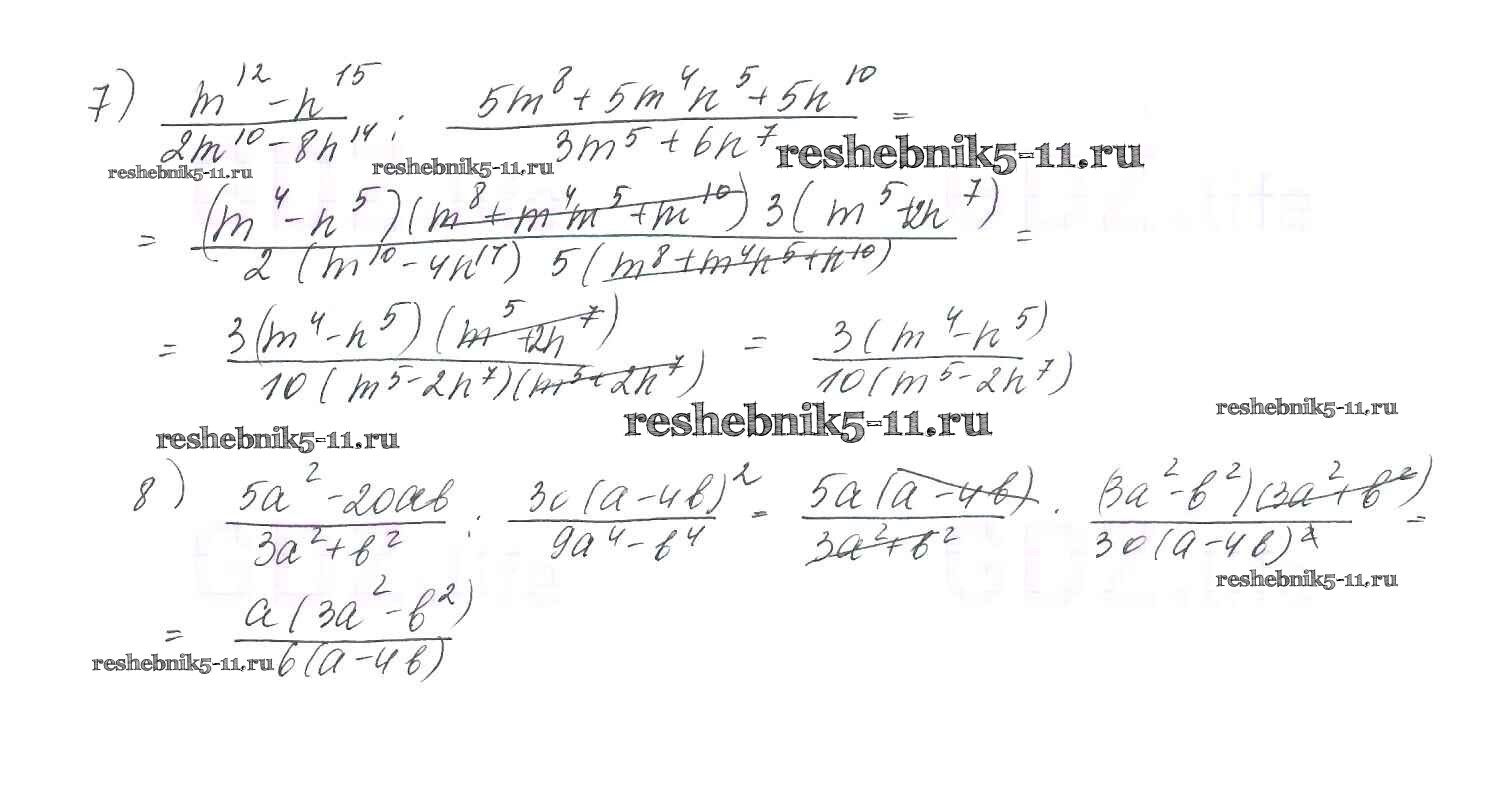 7) (m^12 - n^15)/(2m^10 - 8n^14) : (5m^8 + 5m^4n^5 + 5n^10)/(3m^5 + 6n^7) =
reshebnik5-11.ru reshebnik5-11.ru reshebnik5-11.ru
= ((m^4 - n^5)(m^8 + m^4m^5 + m^10) 3(m^5 + 2n^7))/(2(m^10 - 4n^14) 5(m^8 + m^4n^5 + n^10)) =
= (3(m^4 - n^5)(m^5 + 2n^7))/(10(m^5 - 2n^7)(m^5 + 2n^7)) = (3(m^4 - n^5))/(10(m^5 - 2n^7))
reshebnik5-11.ru reshebnik5-11.ru reshebnik5-11.ru
8) (5a^2 - 20ав)/(3a^2 + в^2) : (30(a - 4в)^2)/(9a^4 - в^4) = (5a(a - 4в))/(3a^2 + в^2) · ((3a^2 - в^2)(3a^2 + в^2))/(30(a - 4в)^2) =
reshebnik5-11.ru
= (a(3a^2 - в^2))/(6(a - 4в))
reshebnik5-11.ru